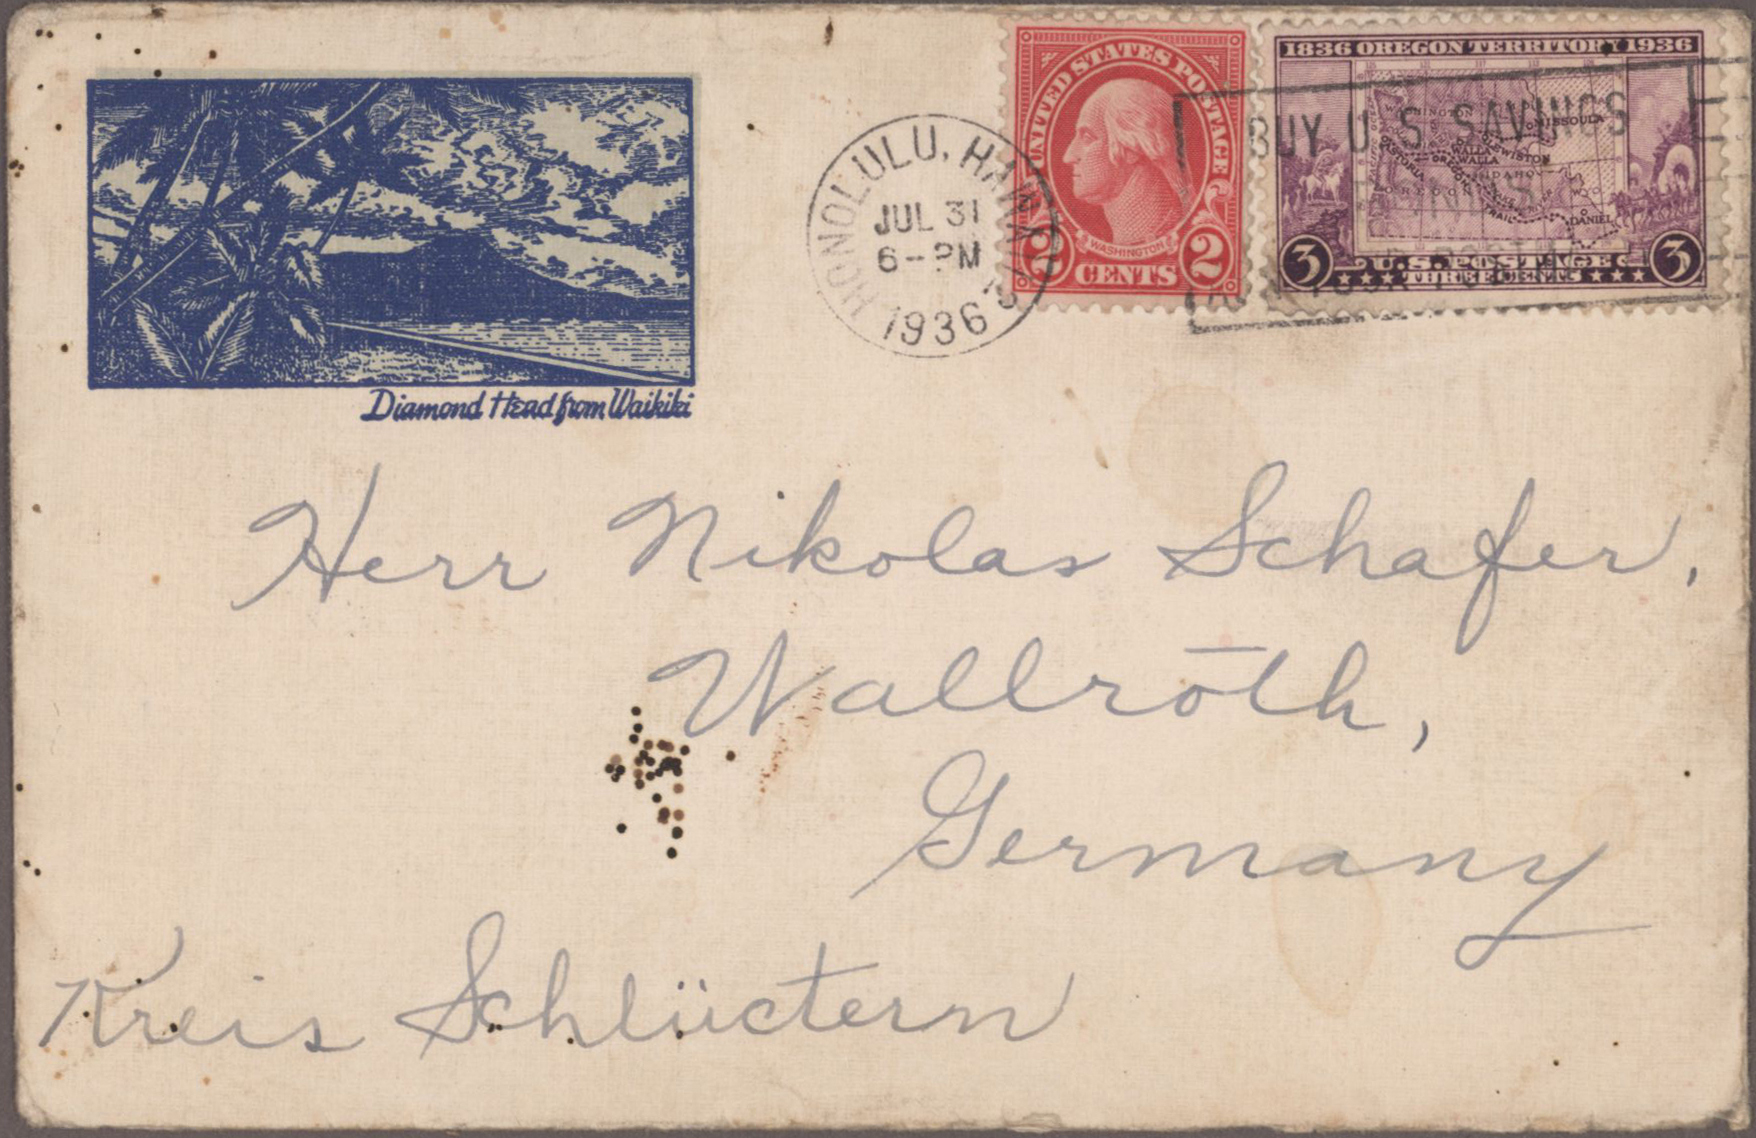 Diamond Head from Waikiki
HONOLULU, HAWAII
JUL 31
6-PM
1936
UNITED STATES POSTAGE
WASHINGTON
2 CENTS 2
1836 OREGON TERRITORY 1936
WASHINGTON
MISSOULA
ASTORIA
WALLA WALLA
LEWISTON
OREGON
IDAHO
WYO
TRAIL
DANIEL
3 U.S. POSTAGE 3
THREE CENTS
BUY U.S. SAVINGS
Herr Nikolas Schafer,
Wallroth,
Germany
Kreis Schlüctern